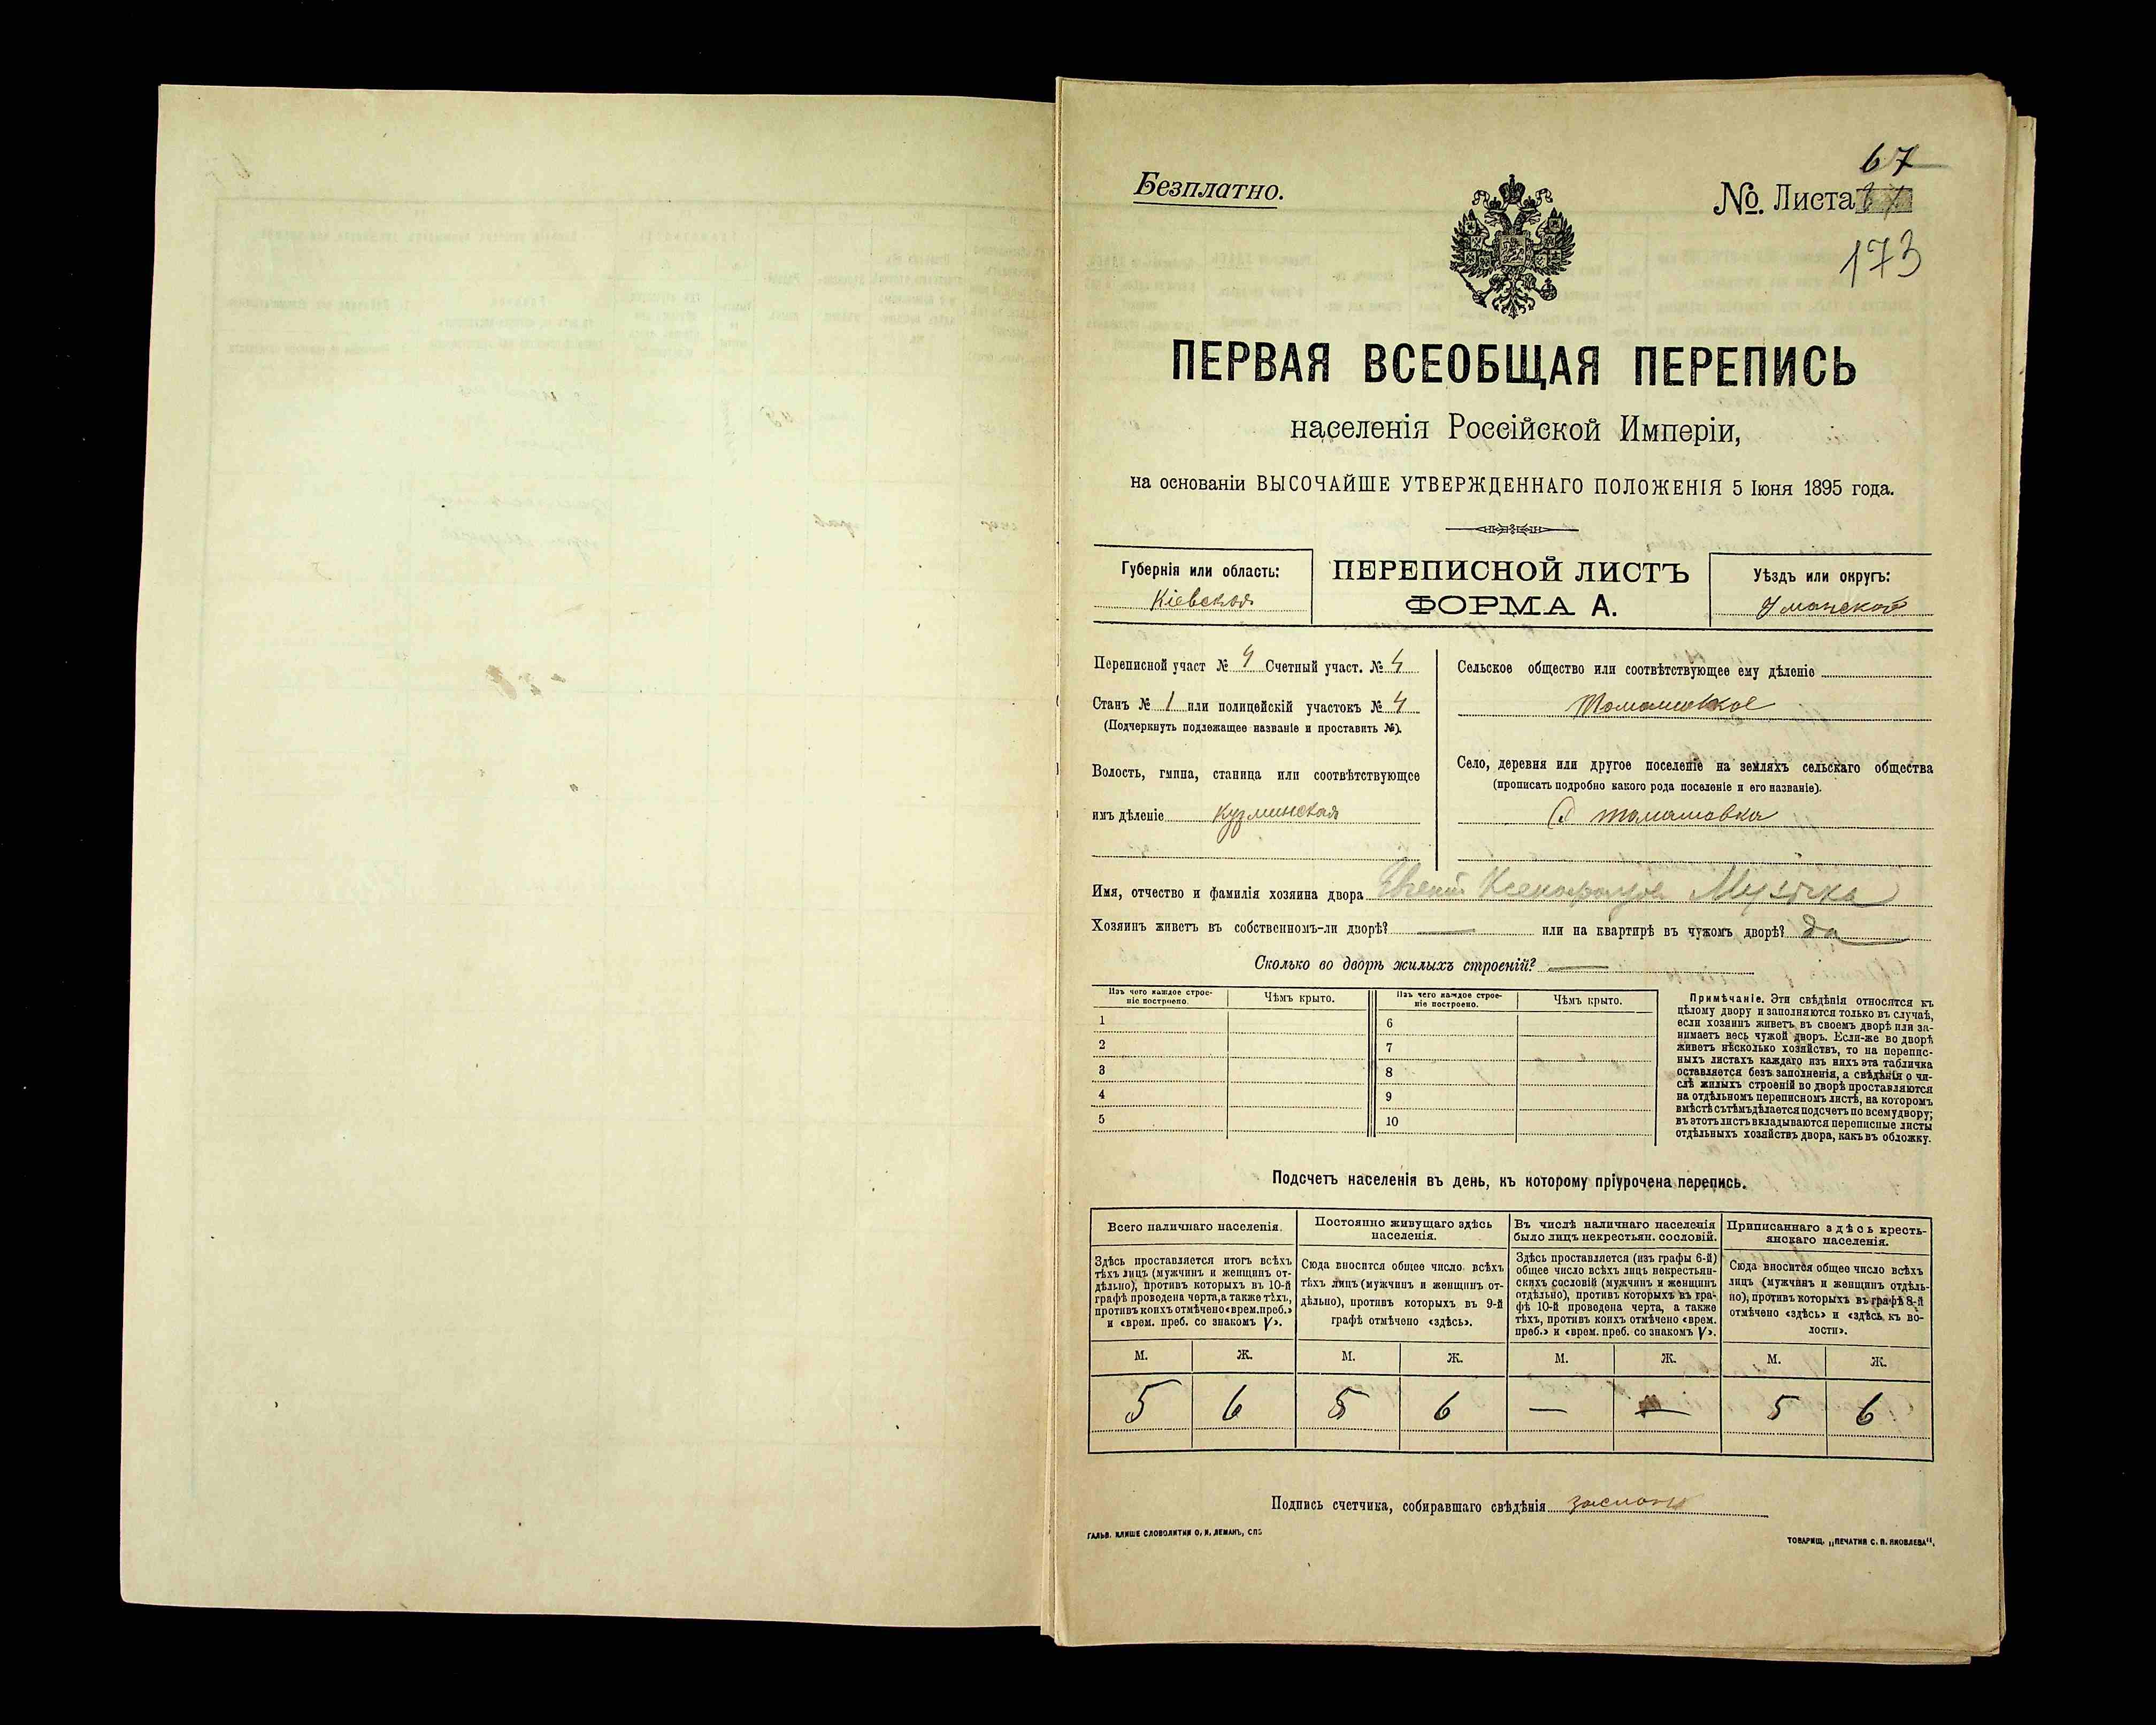 67
Безплатно.
№ Листа
173
ПЕРВАЯ ВСЕОБЩАЯ ПЕРЕПИСЬ
населенія Россійской Имперіи,
на основаніи ВЫСОЧАЙШЕ УТВЕРЖДЕННАГО ПОЛОЖЕНІЯ 5 Іюня 1895 года.
Губернія или область:
Кіевская
ПЕРЕПИСНОЙ ЛИСТЪ
ФОРМА А.
Уѣздъ или округъ:
Уманской
Переписной участ № 4 Счетный участ. № 4
Станъ № 1 или полицейскій участокъ № 4
(Подчеркнуть подлежащее названіе и проставить №).
Волость, гмина, станица или соотвѣтствующее
имъ дѣленіе Кузминская
Сельское общество или соотвѣтствующее ему дѣленіе
Томашовкое
Село, деревня или другое поселеніе на земляхъ сельскаго общества
(прописать подробно какого рода поселеніе и его названіе).
С томашовка
Имя, отчество и фамилія хозяина двора Музычка
Хозяинъ живетъ въ собственномъ-ли дворѣ? — или на квартирѣ въ чужомъ дворѣ? да
Сколько во дворѣ жилыхъ строеній? —
Изъ чего каждое строе-
ніе построено.
Чѣмъ крыто.
Изъ чего каждое строе-
ніе построено.
Чѣмъ крыто.
1
2
3
4
5
6
7
8
9
10
Примѣчаніе. Эти свѣдѣнія относятся къ
цѣлому двору и заполняются только въ случаѣ,
если хозяинъ живетъ въ своемъ дворѣ или за-
нимаетъ весь чужой дворъ. Если-же во дворѣ
живетъ нѣсколько хозяйствъ, то на перепис-
ныхъ листахъ каждаго изъ нихъ эта табличка
оставляется безъ заполненія, а свѣдѣнія о чи-
слѣ жилыхъ строеній во дворѣ проставляются
на отдѣльномъ переписномъ листѣ, на которомъ
вмѣстѣ съ тѣмъ дѣлается подсчетъ по всему двору;
въ этотъ листъ вкладываются переписные листы
отдѣльныхъ хозяйствъ двора, какъ въ обложку.
Подсчетъ населенія въ день, къ которому пріурочена перепись.
Всего наличнаго населенія.
Здѣсь проставляется итогъ всѣхъ
тѣхъ лицъ (мужчинъ и женщинъ от-
дѣльно), противъ которыхъ въ 10-й
графѣ проведена черта, а также тѣхъ,
противъ коихъ отмѣчено «врем. преб.»
и «врем. преб. со знакомъ V».
Постоянно живущаго здѣсь
населенія.
Сюда вносится общее число всѣхъ
тѣхъ лицъ (мужчинъ и женщинъ от-
дѣльно), противъ которыхъ въ 9-й
графѣ отмѣчено «здѣсь».
Въ числѣ наличнаго населенія
было лицъ некрестьян. сословій.
Здѣсь проставляется (изъ графы 6-й)
общее число всѣхъ лицъ некрестьян-
скихъ сословій (мужчинъ и женщинъ
отдѣльно), противъ которыхъ въ гра-
фѣ 10-й проведена черта, а также
тѣхъ, противъ коихъ отмѣчено «врем.
преб.» и «врем. преб. со знакомъ V».
Приписаннаго здѣсь кресть-
янскаго населенія.
Сюда вносится общее число всѣхъ
лицъ (мужчинъ и женщинъ отдѣль-
но), противъ которыхъ въ графѣ 8-й
отмѣчено «здѣсь» и «здѣсь, къ во-
лости».
М. Ж. М. Ж. М. Ж. М. Ж.
5 6 5 6 — — 5 6
Подпись счетчика, собиравшаго свѣдѣнія
ГАЛЬВ. КЛИШЕ СЛОВОЛИТНИ О. И. ЛЕМАНЪ, СПБ
ТОВАРИЩ. „ПЕЧАТНЯ С. П. ЯКОВЛЕВА“.